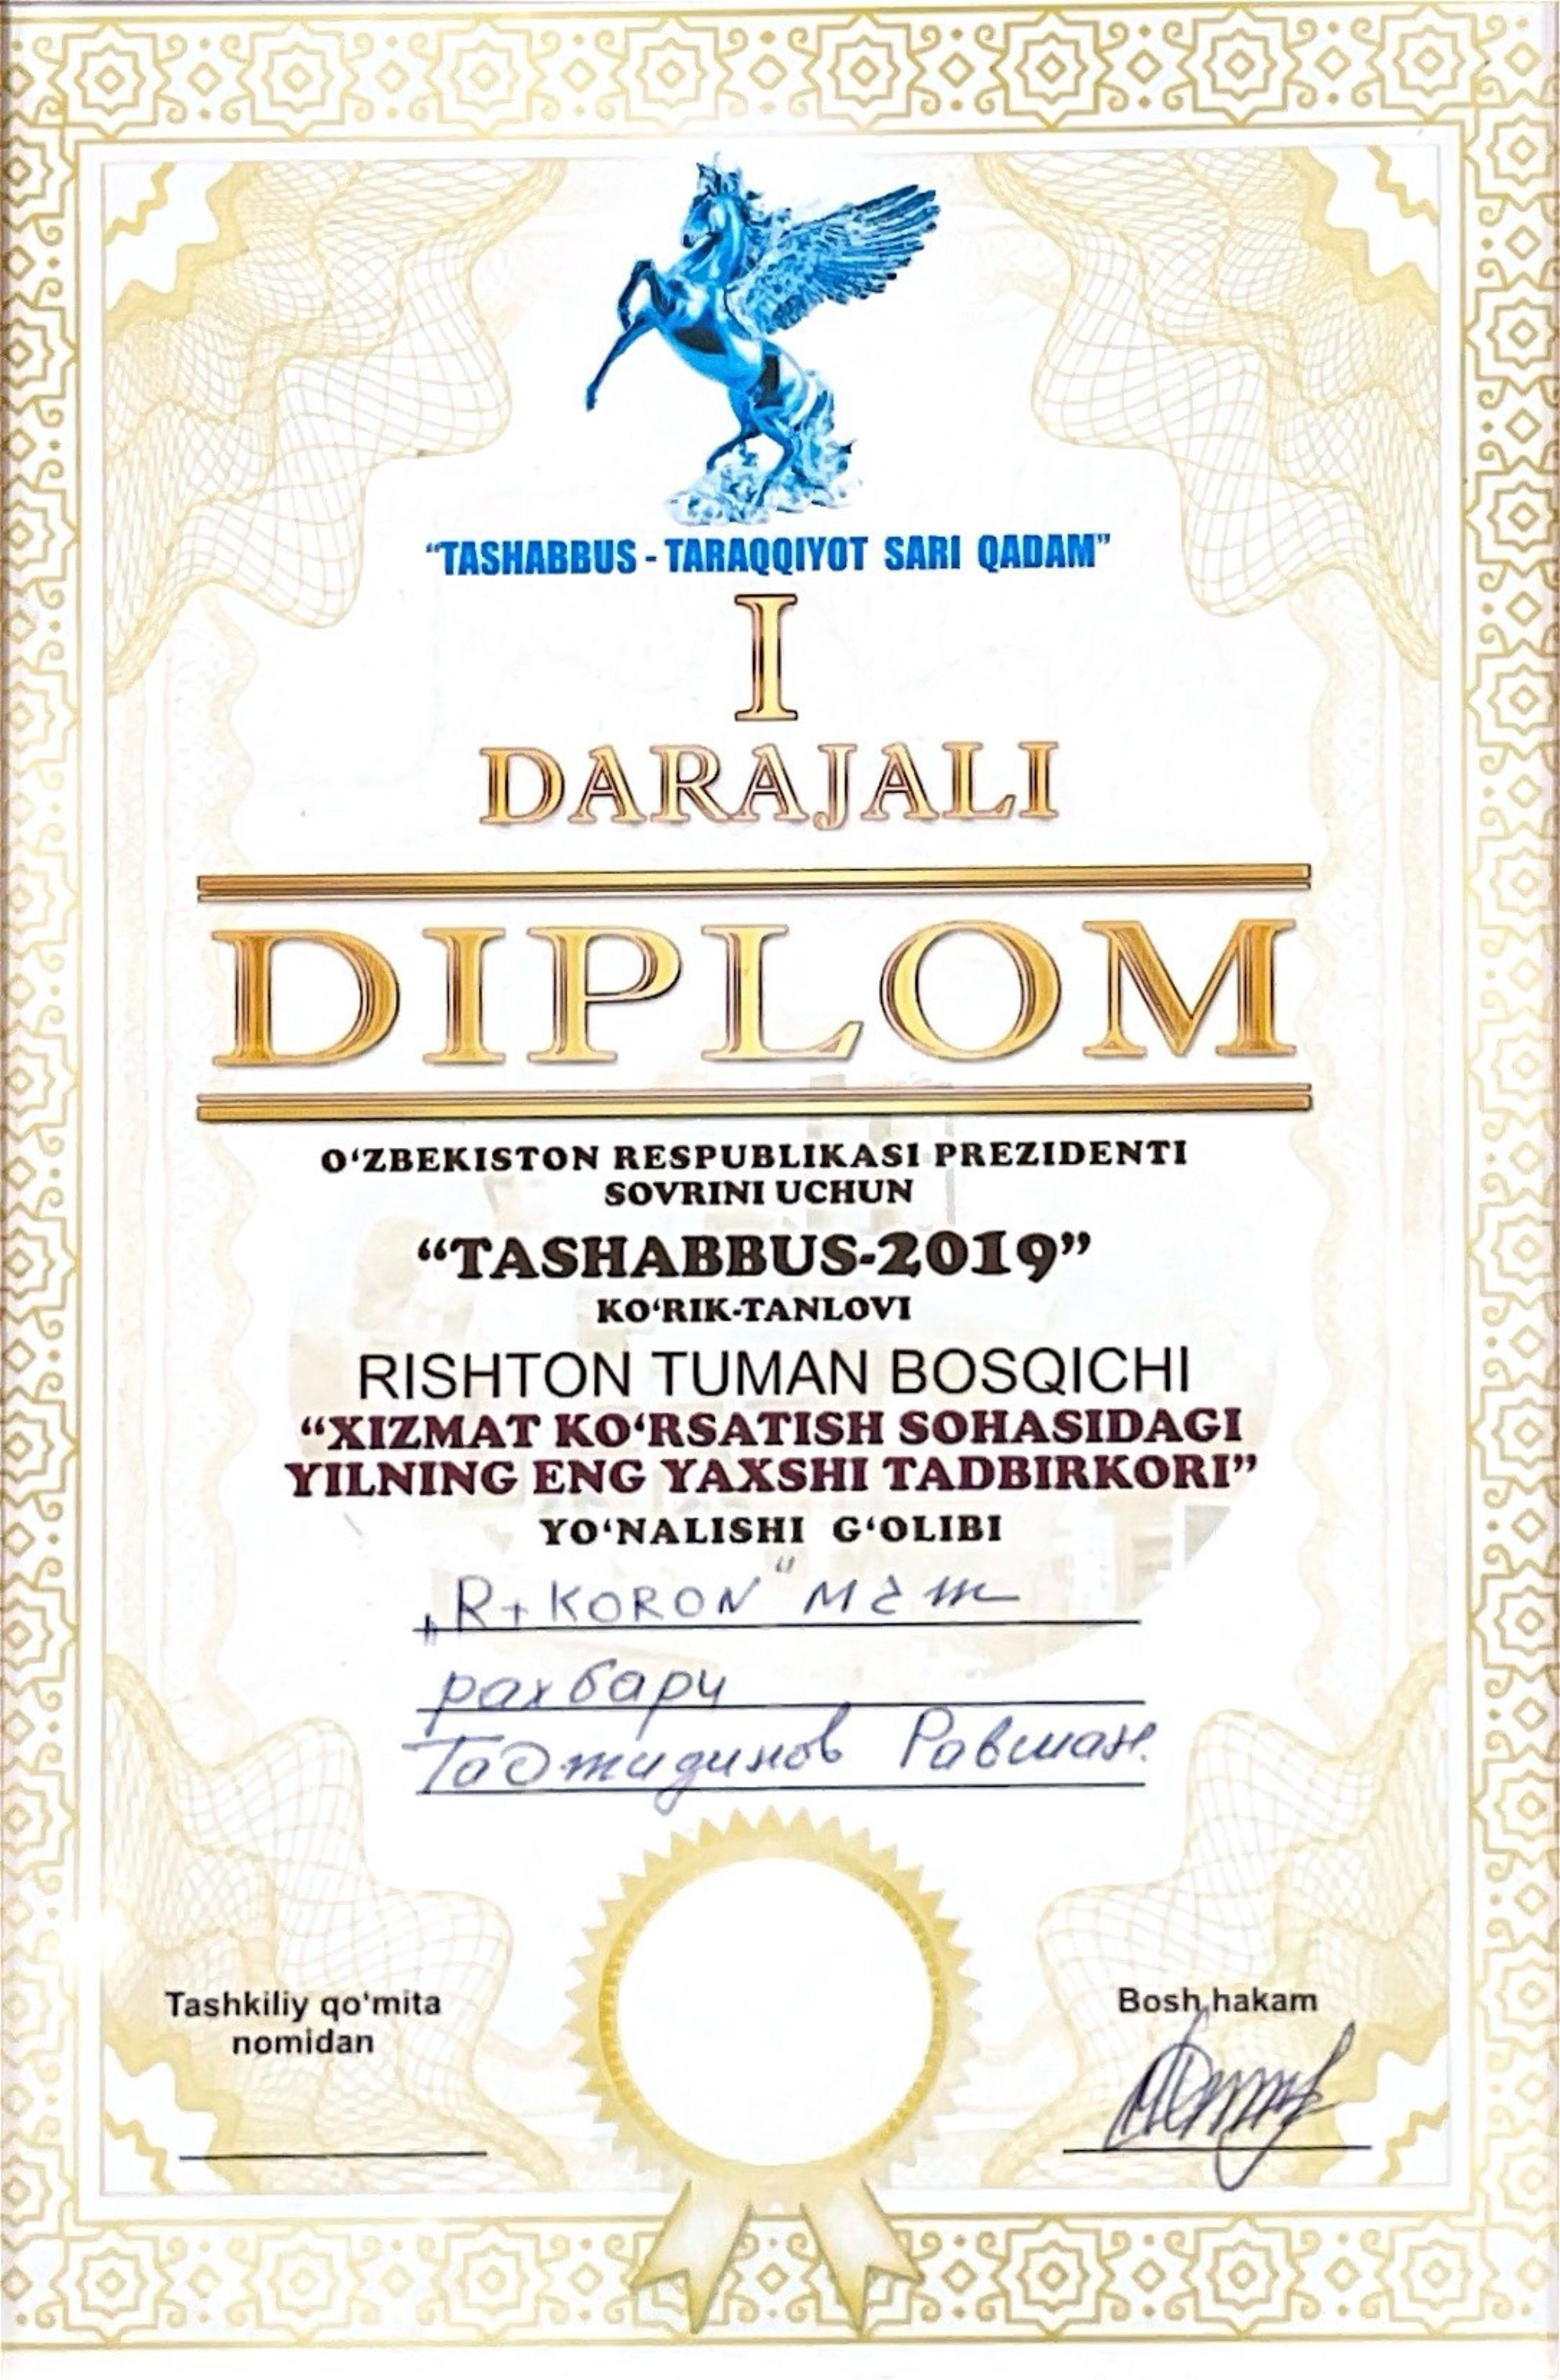 “TASHABBUS - TARAQQIYOT SARI QADAM”
I
DARAJALI
DIPLOM
O‘ZBEKISTON RESPUBLIKASI PREZIDENTI
SOVRINI UCHUN
“TASHABBUS-2019”
KO‘RIK-TANLOVI
RISHTON TUMAN BOSQICHI
“XIZMAT KO‘RSATISH SOHASIDAGI
YILNING ENG YAXSHI TADBIRKORI”
YO‘NALISHI G‘OLIBI
„R+KORON“
рахбари
Таджидинов Равшан.
Tashkiliy qo‘mita
nomidan
Bosh hakam